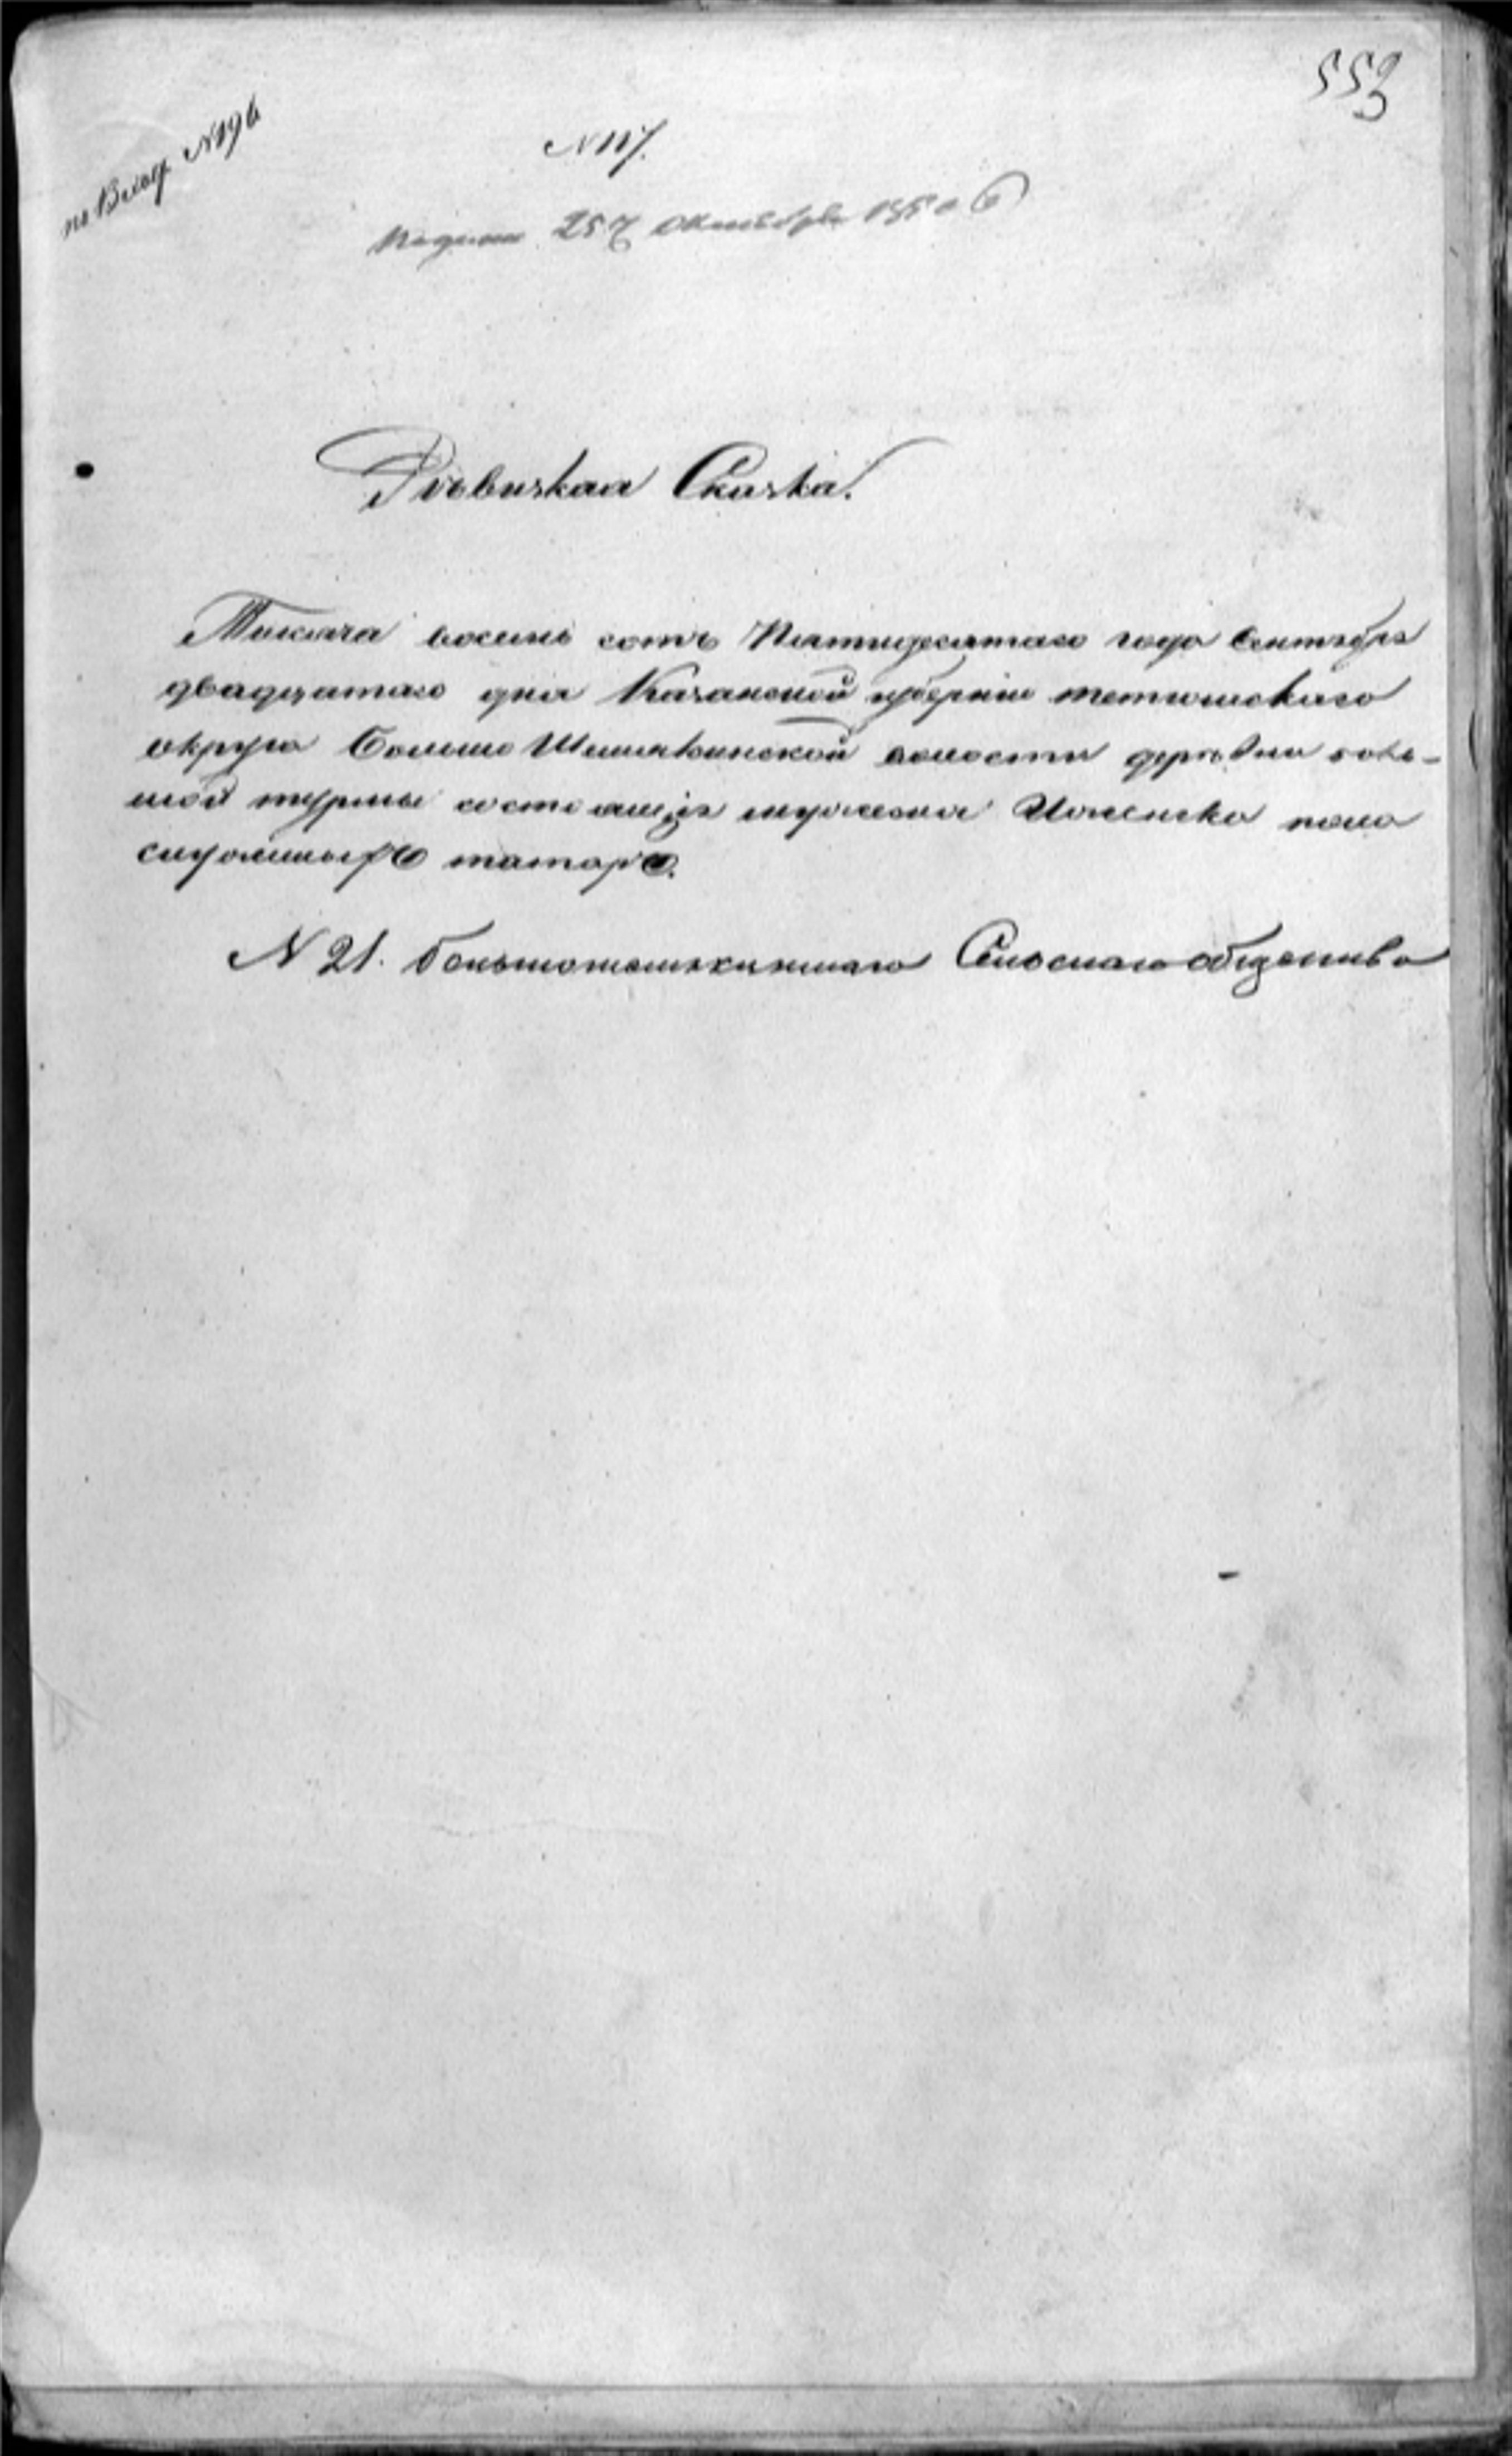 553
по Влад. N 196
N 117.
Подана 25 Октября 1850
Ревизская Сказка.
Тысяча восемь сотъ Пятидесятаго года Сентября
двадцатаго дня Казанской губерніи тетюшскаго
округа Больше Шемякинской волости деревни
мой турмы состоящія мужеска и женска пола
о татарѣ.
N 21. Большошемякинскаго Сельскаго общества